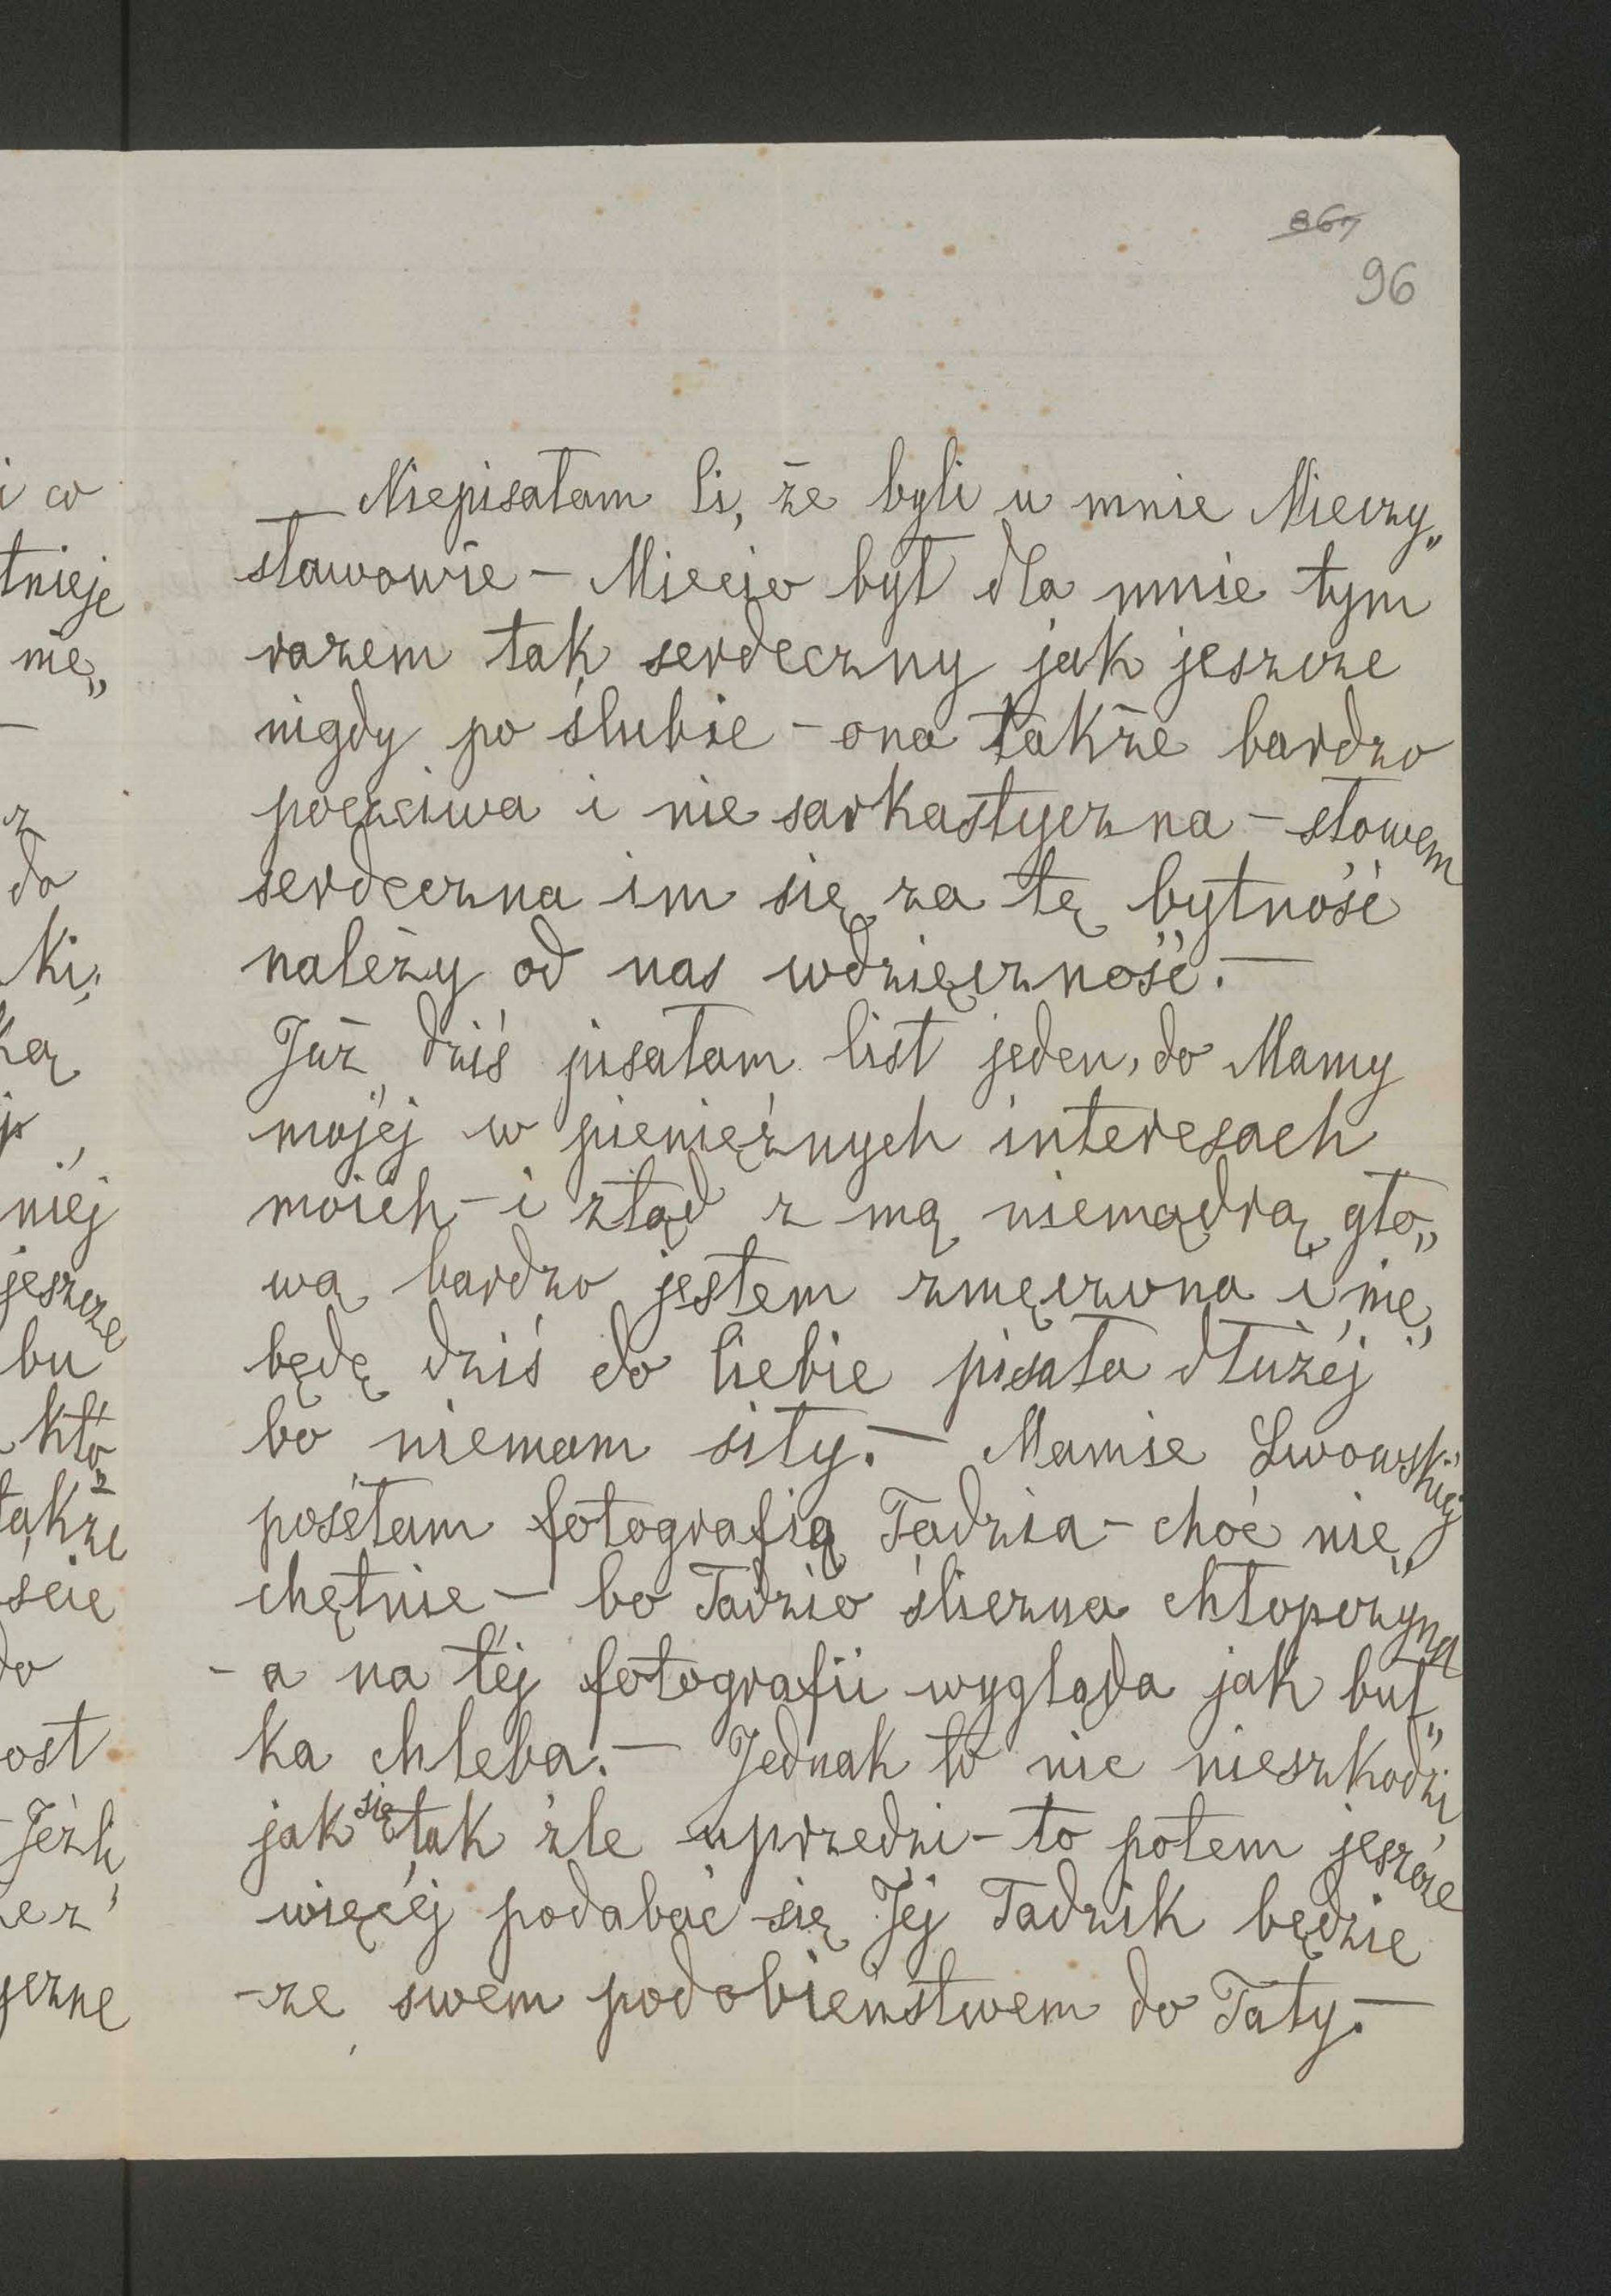 867
96
Niepisałam Ci, że byli u mnie Mieczy„
sławowie – Miecio był dla mnie tym
razem tak serdeczny jak jeszcze
nigdy po ślubie – ona także bardzo
poczciwa i nie sarkastyczna – słowem
serdeczna im się za tę bytność
należy od nas wdzięczność. —
Już dziś pisałam list jeden, do Mamy
mojéj w pieniężnych interesach
moich – i ztąd z mą niemądrą gło„
wą bardzo jestem zmęczona i nie„
będę dziś do Ciebie pisała dłużéj
bo niemam siły. — Mamie Lwowskiéj
posełam fotografią Tadzia – choć nie„
chętnie — bo Tadzio śliczna chłopczyna
– a na téj fotografii wygląda jak buł„
ka chleba. — Jednak to nic nieszkodzi,
jak się tak źle uprzedzi – to potem jeszcze
więcéj podabać się Jéj Tadzik będzie
– ze swem podobieństwem do Taty. —
i co
tnieje
nie„
–
z
do
ki,
ką
p
niéj
jeszcze
bu
któ
także
ście
do
ost
Jeżli
żez
yczne